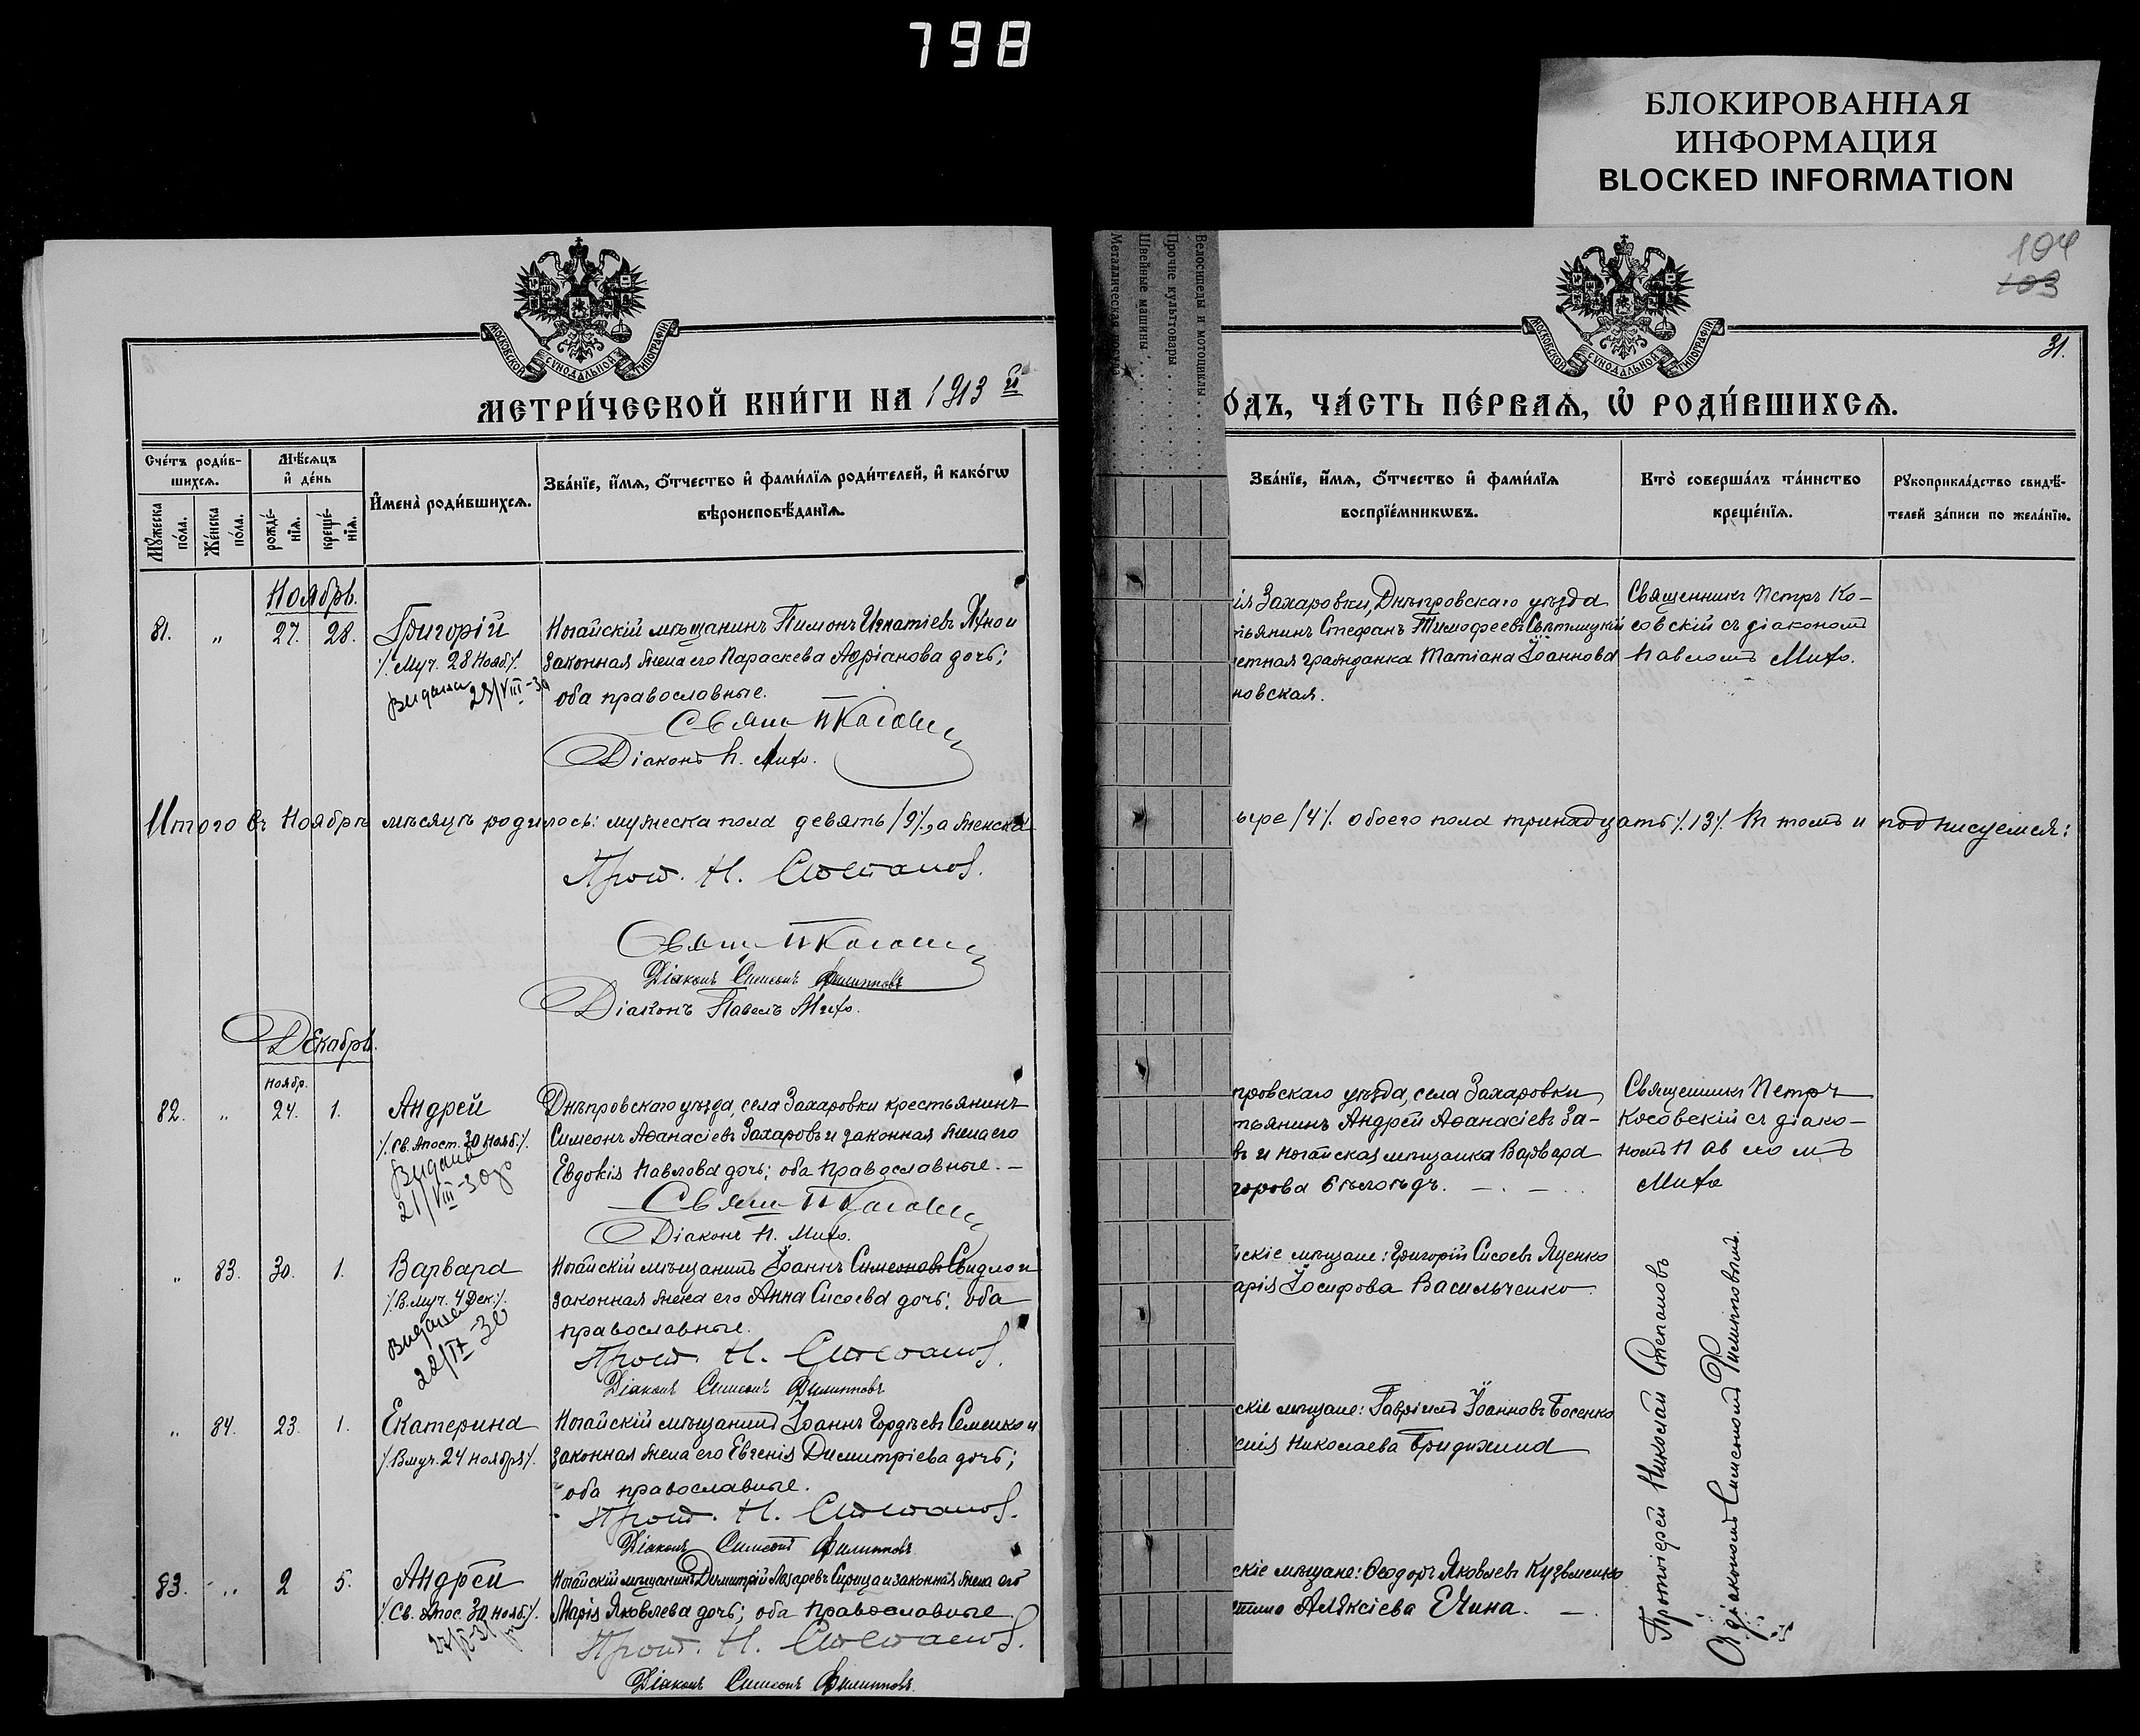 798
БЛОКИРОВАННАЯ
ИНФОРМАЦИЯ
BLOCKED INFORMATION
104
103
31.
МОСКОВСКОЙ СУНОДАЛЬНОЙ ТИПОГРАФІИ
МОСКОВСКОЙ СУНОДАЛЬНОЙ ТИПОГРАФІИ
МЕТРИ́ЧЕСКОЙ КНИ́ГИ НА 1913 й
О́ДЪ, ЧА́СТЬ ПЕ́РВАѦ, Ѡ҆ РОДИ́ВШИХСѦ.
Велосипеды и мотоциклы
Прочие культтовары
Швейные машины
Металлическая посуда
Сче́тъ роди́в-
шихсѧ.
Мѣ́сѧцъ
и҆ де́нь
И҆мена̀ роди́вшихсѧ.
Зва́нїе, и҆́мѧ, ѻ҆́тчество и҆ фами́лїѧ роди́телей, и҆ како́гѡ
вѣроисповѣ́данїѧ.
Мꙋ́жеска
по́ла.
Же́нска
по́ла.
рожде́-
нїѧ.
креще́-
нїѧ.
Зва́нїе, и҆́мѧ, ѻ҆́тчество и҆ фами́лїѧ
воспрїе́мникѡвъ.
Кто̀ соверша́лъ та́инство
креще́нїѧ.
Рꙋкоприкла́дство свидѣ́-
телей за́писи по жела́нїю.
Ноябрь.
81. „ 27. 28. Григорій
/. Муч. 28 Нояб./.
Видана 23/VIII-30
Ногайскій мѣщанинъ Пимонъ Игнатіевъ и
законная жена его Параскева Адріанова дочь;
оба православные.
Свящ. П Косовскій
Діаконъ П. Михо.
ія Захаровки, Днѣпровскаго уѣзда
тьянинъ Стефанъ Тимофеевъ Свѣтлицкій
етная гражданка Татіана Іоаннова
новская.
Священникъ Петръ Ко-
совскій съ діакономъ
Павломъ Михо.
Итого въ Ноябрѣ мѣсяцѣ родилось: мужеска пола девять /9/., а женска
ыре /4/. обоего пола тринадцать /.13/. Въ томъ и подписуемся:
Прот. Н. Степановъ.
Свящ. П Косовскій
Діаконъ Симеонъ Филипповъ
Діаконъ Павелъ Михо.
Декабрь.
Ноябр.
82. „ 24. 1. Андрей
/. Св. Апост. 30 Нояб./.
Видана
21/VIII-30
Днѣпровскаго уѣзда, села Захаровки крестьянинъ
Симеонъ Аѳанасіевъ Захаровъ и законная жена его
Евдокія Павлова дочь; оба православные. –
Свящ. П Косовскій
Діаконъ П. Михо.
провскаго уѣзда, села Захаровки
тьянинъ Андрей Аѳанасіевъ За-
въ и Ногайская мѣщанка Варвара
горова Бѣлогъдъ. –
Священникъ Петръ
Косовскій съ діако-
номъ Павломъ
Михо
„ 83. 30. 1. Варвара
/. В. муч. 4 Дек./.
Видана
22/IX-30
Ногайскій мѣщанинъ Іоаннъ Симеоновъ Свидло и
законная жена его Анна Сисоева дочь; оба
православные.
Прот. Н. Степановъ.
Діаконъ Симеонъ Филипповъ
скіе мѣщане: Григорій Сисоевъ Яценко
арія Іосифова Васильченко.
„ 84. 23. 1. Екатерина
/. Вмуч. 24 ноября/.
Ногайскій мѣщанинъ Іоаннъ Гордѣевъ Семенко и
законная жена его Евгенія Димитріева дочь;
оба православные.
Прот. Н. Степановъ.
Діаконъ Симеонъ Филипповъ
скіе мѣщане: Гавріилъ Іоанновъ Босенко
енія Николаева Бридихина
83. „ 2 5. Андрей
/. Св. Апос. 30 нояб./.
Ногайскій мѣщанинъ Димитрій Лазаревъ Сирица и законная жена его
Марія Яковлева дочь; оба православные.
Прот. Н. Степановъ.
Діаконъ Симеонъ Филипповъ.
скіе мѣщане: Ѳеодоръ Яковлевъ Кузьменко
Алексіева Ечина. –
Протоіерей Николай Степановъ
съ діакономъ Симеономъ Филипповымъ.